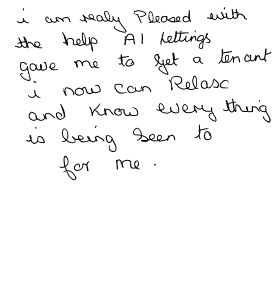 i am realy Pleased with
the help A1 Lettings
gave me to get a tenant
i now can Relasc
and know every thing
is being seen to
for me.